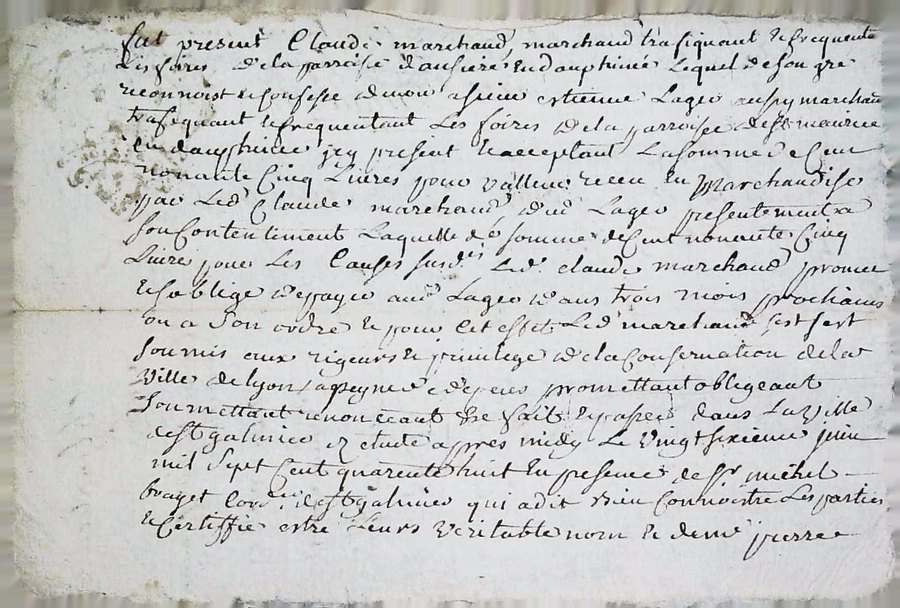 fut present Claude marchand, marchand trafiquant et frequente
Les foires de la parroise d'ansiere En dauphinee Lequel de son gre
reconnoist et confesse devoir a sieur estienne Lageo aussy marchan
trafequant et frequentant Les foires de la parroisse de st maurice
En dauphinee icy present et acceptant La somme de Cent
nonante Cinq Livres pour valleur receue En Marchandise
par Led Claude marchand dud Lageo presentement a
son Contentement Laquelle de somme de Cent nonante Cinq
Livre pour Les Causes susd Led. claude marchand promet
Et soblige de payer aud Lageo dans trois mois prochains
ou a Son ordre Et pour Cet effet Led marchand sest
soumis aux rigeurs Et privilege de la Conservation de la
Ville de Lyon a peyne de depens promettant obligeant
Soumettant renonceant &e fait Et passe dans La Ville
de st galmier Et etude apres midy Le Vingt sixieme juin
mil Sept Cent quarente huit En presence de Sr michel
Cord. de st galmier qui a dit bien Connoistre Les parties
Et Certiffie estre Leurs Veritable nom Et deme pierre